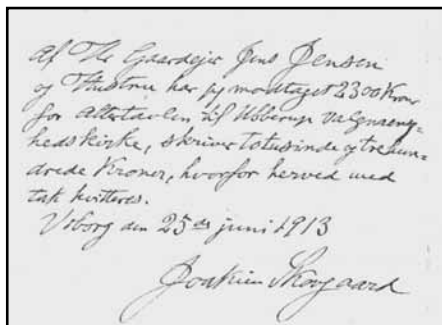 Af Hr Gaardejer Jens Jensen
og Hustru har jeg modtaget 2300 Kroner
for Altertavlen til Ubberup Valgmenig-
hedskirke, skriver totusinde og trehun-
drede Kroner, hvorfor herved med
tak kvitteres.
Viborg den 25de juni 1913
Joakim Skovgaard